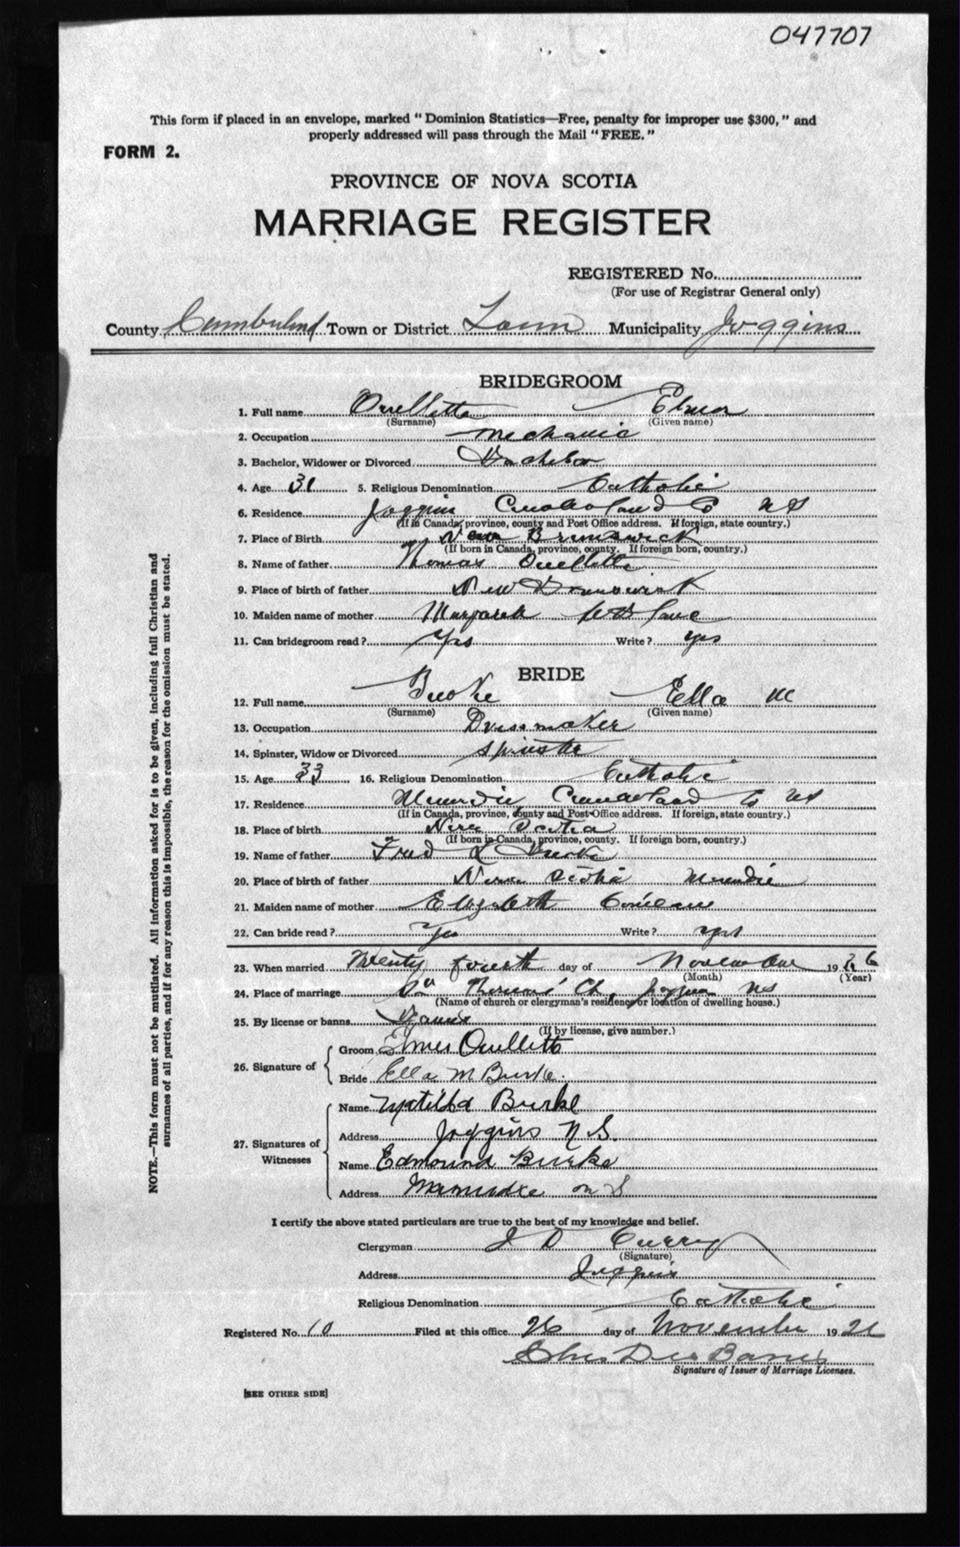 047707
This form if placed in an envelope, marked "Dominion Statistics—Free, penalty for improper use $300," and
properly addressed will pass through the Mail "FREE."
FORM 2.
PROVINCE OF NOVA SCOTIA
MARRIAGE REGISTER
REGISTERED No.
(For use of Registrar General only)
County Cumberland Town or District Town Municipality Joggins
BRIDEGROOM
1. Full name Ouellette Elmer
(Surname) (Given name)
2. Occupation Mechanic
3. Bachelor, Widower or Divorced Bachelor
4. Age 31 5. Religious Denomination Catholic
6. Residence Joggins Cumberland Co NS
(If in Canada, province, county and Post Office address. If foreign, state country.)
7. Place of Birth New Brunswick
(If born in Canada, province, county. If foreign born, country.)
8. Name of father Thomas Ouellette
9. Place of birth of father New Brunswick
10. Maiden name of mother Margaret
11. Can bridegroom read? Yes Write? yes
BRIDE
12. Full name Burke Ella M
(Surname) (Given name)
13. Occupation Dressmaker
14. Spinster, Widow or Divorced Spinster
15. Age 33 16. Religious Denomination Catholic
17. Residence Minudie Cumberland Co NS
(If in Canada, province, county and Post Office address. If foreign, state country.)
18. Place of birth Nova Scotia
(If born in Canada, province, county. If foreign born, country.)
19. Name of father Fred L Burke
20. Place of birth of father Nova Scotia Minudie
21. Maiden name of mother Elizabeth
22. Can bride read? Yes Write? yes
23. When married Twenty fourth day of November 1926
(Month) (Year)
24. Place of marriage Ch, Joggins NS
(Name of church or clergyman's residence or location of dwelling house.)
25. By license or banns Banns
(If by license, give number.)
26. Signature of
Groom Elmer Ouellette
Bride Ella M Burke.
27. Signatures of
Witnesses
Name Matilda Burke
Address Joggins N.S.
Name Edmound Burke
Address N S
I certify the above stated particulars are true to the best of my knowledge and belief.
Clergyman J D Curry
(Signature)
Address Joggins
Religious Denomination Catholic
Registered No. 10 Filed at this office 26 day of November 1926
Signature of Issuer of Marriage Licenses.
[SEE OTHER SIDE]
NOTE.—This form must not be mutilated. All information asked for is to be given, including full Christian and
surnames of all parties, and if for any reason this is impossible, the reason for the omission must be stated.